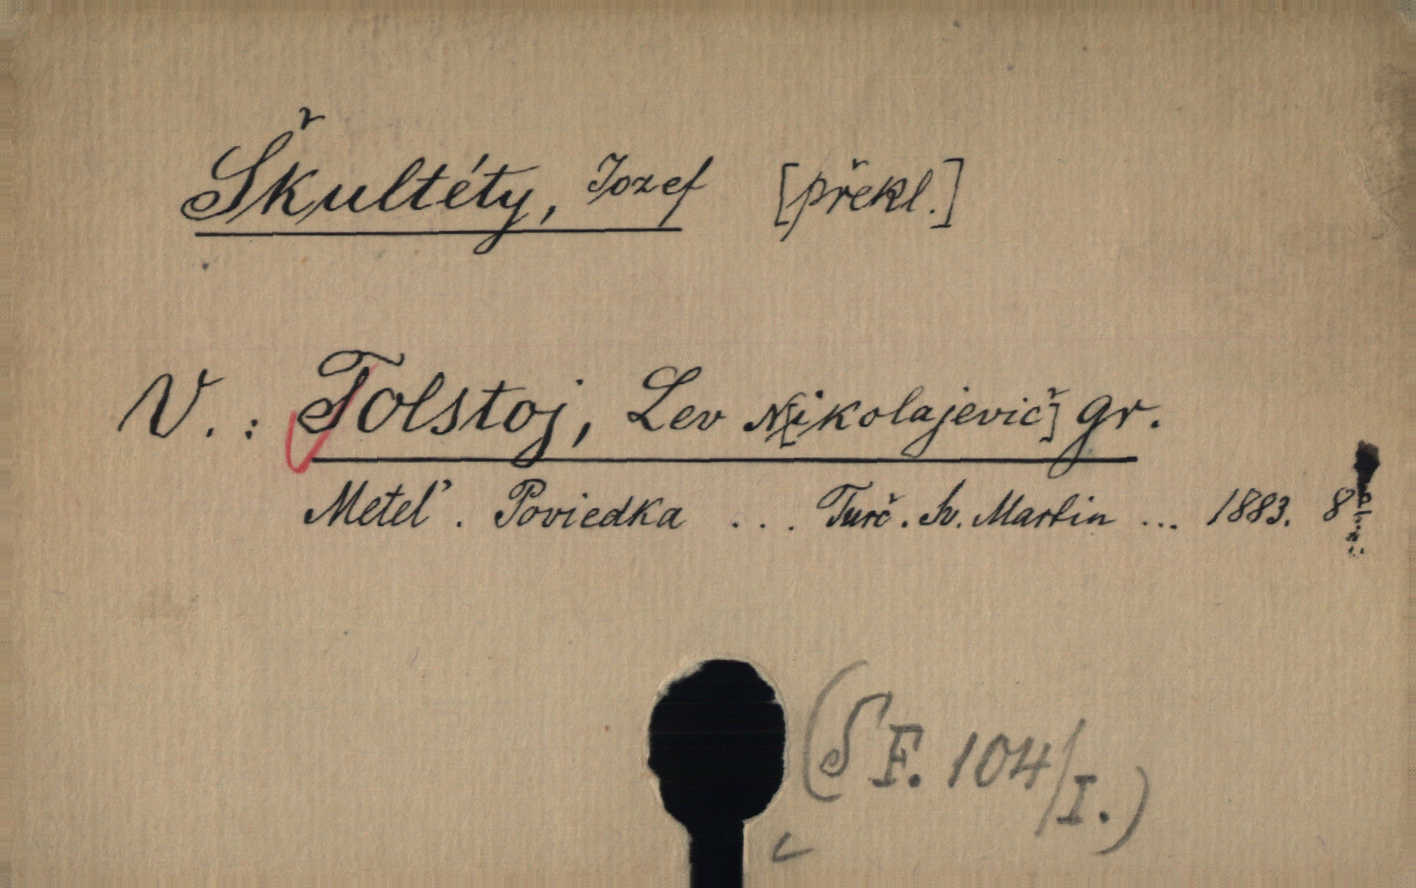 Škultéty, Jozef [překl.]
V.: Tolstoj, Lev N[ikolajevič] gr.
Meteľ. Poviedka ... Turč. Sv. Martin ... 1883. 8°
(SF. 104/I.)